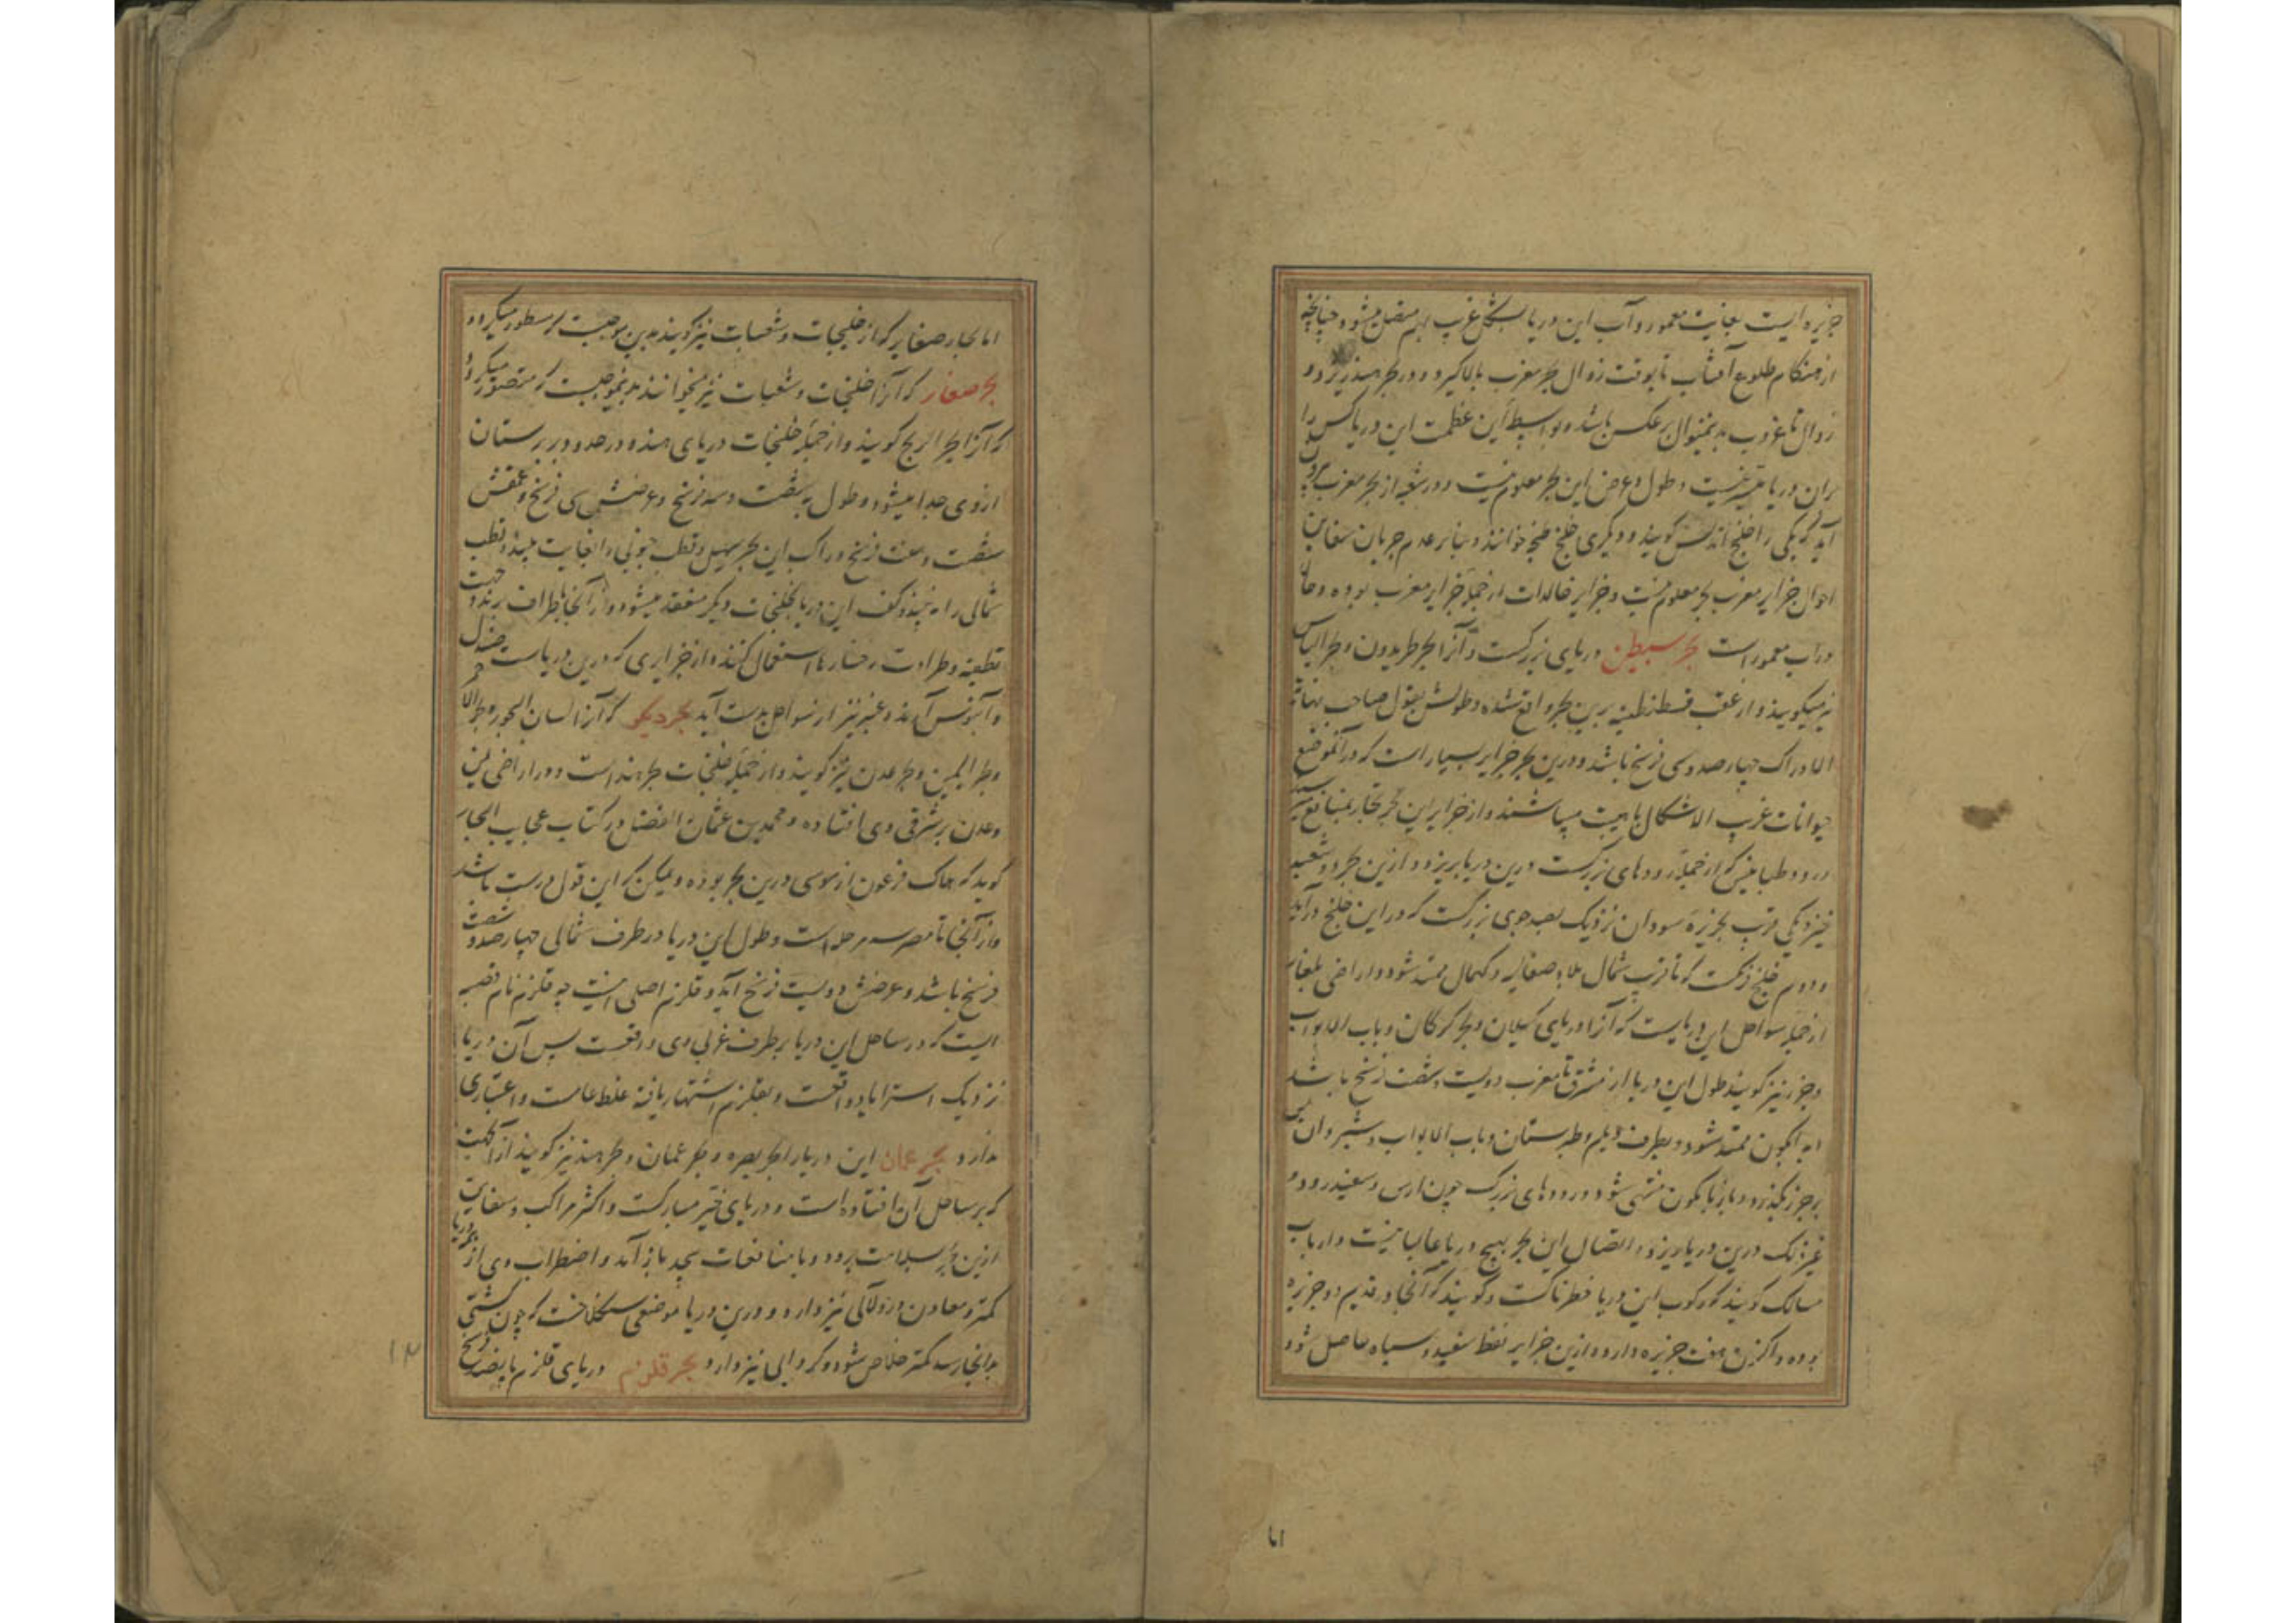 جزیره ایست بغایت معمور و آب این دریا بشکل غریب بهم متصل میشود چنانچه
از هنگام طلوع آفتاب تا بوقت زوال بحر مغرب بالا گیرد و در بحر هند ریزد و
زوال تا غروب بدینمنوال برعکس باشد و بواسطه این عظمت این دریا کس را
بران دریا نیست و طول و عرض این بحر معلوم نیست و دو شعبه از بحر مغرب
آید که یکی را خلیج اندلس گویند و دیگری خلیج طنجه خوانند و بنابر عدم جریان سفاین
احوال جزایر مغرب بحر معلوم نیست و جزایر خالدات از جمله جزایر مغرب بوده و حالا
در آب معمور است بحر سبطن دریای بزرگست و آنرا بحر طربدون و بحر الیاس
نیز میگویند و از عقب قسطنطنیه برین بحر واقع شده و طولش بقول صاحب نهایة
الادراک چهارصد و سی فرسخ باشد و درین بحر جزایر بسیار است که در آنموضع
حیوانات غریب الاشکال با هیبت میباشند و از جزایر این بحر تجار بمنافع
در رود طبابیس که از جمله رودهای بزرگست درین دریا بریزد و ازین بحر دو شعبه
خیزد یکی قریب بجزیره سودان نزدیک بصد جوی بزرگست که در این خلیج درآید
و دوم خلیج زنکست که تا قریب شمال بلاد صقالیه و کیمال ممتد شود و اراضی بلغار
از جمله سواحل این دریاست که آنرا دریای گیلان و بحر گرگان و باب الابواب
و خزر نیز گویند طول این دریا از مشرق تا مغرب دویست و شصت فرسخ باشد
به آبسکون ممتد شود و بطرف دیلم و طبرستان و باب الابواب و شیروان پس
بر خزر بگذرد و باز بآبسکون منتهی شود و رودهای بزرگ چون ارس و سفیدرود و
غیر ذلک درین دریا ریزد و اتصال این بحر بهیچ دریا غالبا نیست و ارباب
مسالک گویند که رکوب این دریا خطرناکست و گویند که آنجا در قدیم دو جزیره
بوده و اکنون هفت جزیره دارد و ازین جزایر نفط سفید و سیاه حاصل شود
اما
اما بحار صغایر که از خلیجات و شعبات نیز گویند بدین موجبست که مسطور میگردد
بحر صغار که آنرا خلیجات و شعبات نیز میخوانند بدینموجبست که متصور میگردد
که آنرا بحر الریح گویند و از جمله خلیجات دریای هنده در حدود بربرستان
از وی جدا میشود و طول یه شصت و سه فرسخ و عرضش سی فرسخ و عمقش
شصت و هفت فرسخ و راکب این بحر سهیل و قطب جنوبی را بغایت بیند و قطب
شمالی را نه بیند و کف این دریا بخلیجات دیگر منعقد میشود و از آنجا باطراف برند و جهت
تطعیه و طراوت رخسارها استعمال کنند و از جزایری که درین دریاست صندل
و آبنوس آید و عنبر نیز از سواحل بدست آید بحر دیگر که آنرا لسان البحور و بحر الا
و بحر الیمین و بحر عدن نیز گویند و از جمله خلیجات بحر هند است و در اراضی یمن
و عدن بر شرقی وی افتاده و محمد بن عثمان الفضل در کتاب عجایب البحار
گوید که هلاک فرعون از موسی درین بحر بوده و ممکن که این قول درست باشد
و از آنجا تا مصر سه مرحله است و طول این دریا در طرف شمالی چهارصد و شصت
فرسخ باشد و عرضش دویست فرسخ آید و قلزم اصلی اینست چه قلزم نام قصبه
ایست که در ساحل این دریا بر طرف غربی وی واقعست پس آن دریا
نزدیک استراباد واقعست و بقلزم اشتهار یافته غلط عامست و اعتباری
ندارد بحر عمان این دریا را بحر بصره و بحر عمان و بحر هند نیز گویند از آنجهت
که بر ساحل آن افتاده است و دریای خیر مبارکست و اکثر مراکب و سفاین
ازین بحر بسلامت برود و با منافعات بیحد باز آمد و اضطراب وی از بحر دریا
کمتر و معادن در و لآلی نیز دارد و درین دریا موضعی سنگلاخست که چون کشتی
بدانجا رسد کمتر خلاص شود و گردابی نیز دارد بحر قلزم دریای قلزم پانصد فرسخ
۱۳